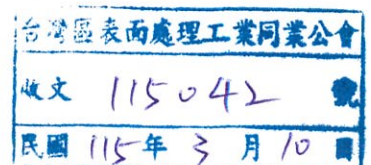 台灣區表面處理工業同業公會
收文 115042 號
民國 115年 3 月 10 日